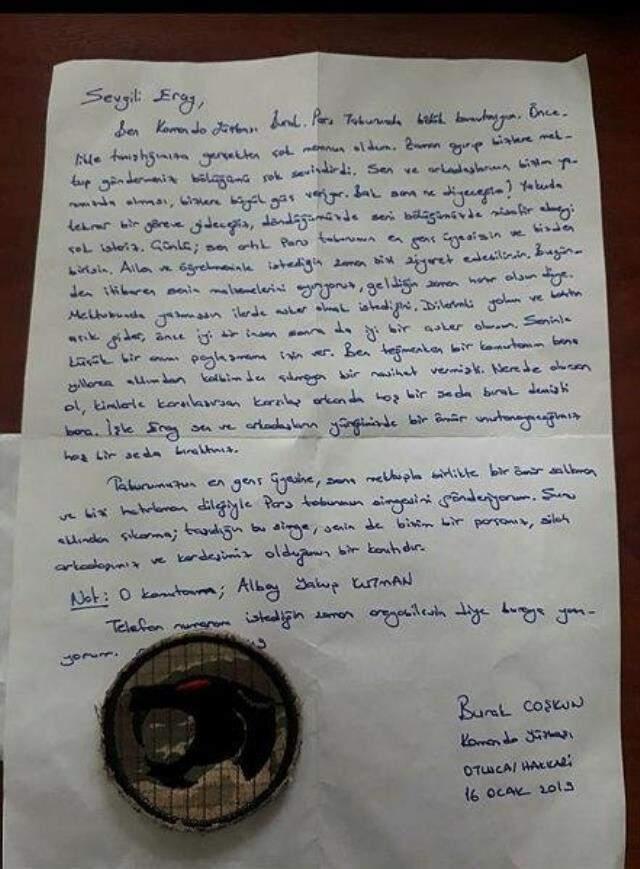 Sevgili Eray,
Ben Komando Yüzbaşı Burak. Pars Taburunda bölük komutanıyım. Önce-
likle tanıştığımıza gerçekten çok memnun oldum. Zaman ayırıp bizlere mek-
tup göndermeniz bölüğümü çok sevindirdi. Sen ve arkadaşlarının bizim ya-
nımızda olması, bizlere büyük güç veriyor. Bak sana ne diyeceğim! Yakında
tekrar bir göreve gideceğiz, döndüğümüzde seni bölüğümüzde misafir etmeyi
çok isteriz. Çünkü; sen artık Pars taburunun en genç üyesisin ve bizden
birisin. Ailen ve öğretmeninle istediğin zaman bizi ziyaret edebilirsin. Bugün-
den itibaren senin malzemelerini ayırıyoruz, geldiğin zaman hazır olsun diye.
Mektubunda yazmışsın ilerde asker olmak istediğini. Dilerimki yolun ve bahtın
açık gider, önce iyi bir insan sonra da iyi bir asker olursun. Seninle
küçük bir anımı paylaşmama izin ver. Ben teğmenken bir komutanım bana
yıllarca aklımdan kalbimden çıkmayan bir nasihat vermişti. Nerede olursan
ol, kimlerle karşılaşırsan karşılaş arkanda hoş bir seda bırak demişti
bana. İşte Eray sen ve arkadaşların yüreğimizde bir ömür unutamayacağımız
hoş bir seda bıraktınız.
Taburumuzun en genç üyesine, sana mektupla birlikte bir ömür saklaman
ve bizi hatırlaman dileğiyle Pars taburunun simgesini gönderiyorum. Şunu
aklından çıkarma; taşıdığın bu simge, senin de bizim bir parçamız, silah
arkadaşımız ve kardeşimiz olduğunun bir kanıtıdır.
Not: O komutanım; Albay Yakup KUTMAN
Telefon numaramı istediğin zaman arayabilesin diye buraya yazı-
yorum.
Burak COŞKUN
Komando Yüzbaşı
OTLUCA/HAKKARİ
16 OCAK 2019